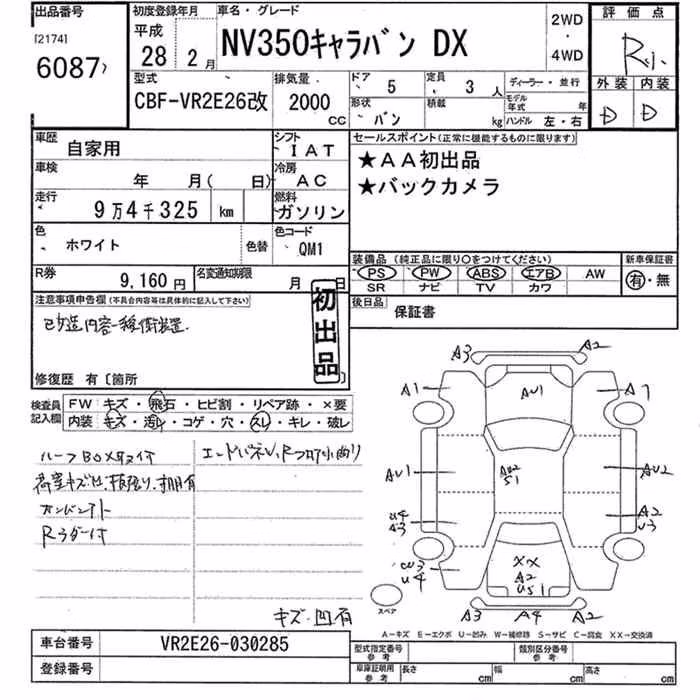 出品番号
[2174]
6087
初度登録年月
平成
28 2月
車名・グレード
NV350キャラバン DX
2WD
・
4WD
評価点
R
外装 内装
D D
型式
CBF-VR2E26改
排気量
2000
cc
ドア 5
定員 3人
形状 バン
積載 kg
ディーラー・並行
モデル年式 年
ハンドル 左・右
車歴
自家用
シフト
IAT
車検
年 月( 日)
冷房
AC
走行
9万4千325 km
燃料
ガソリン
色
ホワイト
色替
色コード
QM1
R券
9,160円
名変通知期限
月 日
セールスポイント(正常に機能するものに限ります)
★AA初出品
★バックカメラ
装備品(純正品に限り○をつけてください)
PS PW ABS エアB AW
SR ナビ TV カワ
新車保証書
有・無
後日品
保証書
注意事項申告欄(不具合内容等は具体的に記入して下さい)
初出品
修復歴 有〔箇所
検査員記入欄
FW キズ・飛石・ヒビ割・リペア跡・×要
内装 キズ・汚れ・コゲ・穴・スレ・キレ・破レ
キズ・凹有
A3 A2
A1 AU1 A7
AU1 AU2 S1 AU2
U4 A3 A2 U3
W3 U4 XX A2 US1
スペア
A3 A4 A2
A―キズ E―エクボ U―凹み W―補修跡 S―サビ C―腐食 XX―交換済
車台番号 VR2E26-030285
登録番号
型式指定番号 参考
類別区分番号 参考
車庫証明用 参考
長さ cm
幅 cm
高さ cm